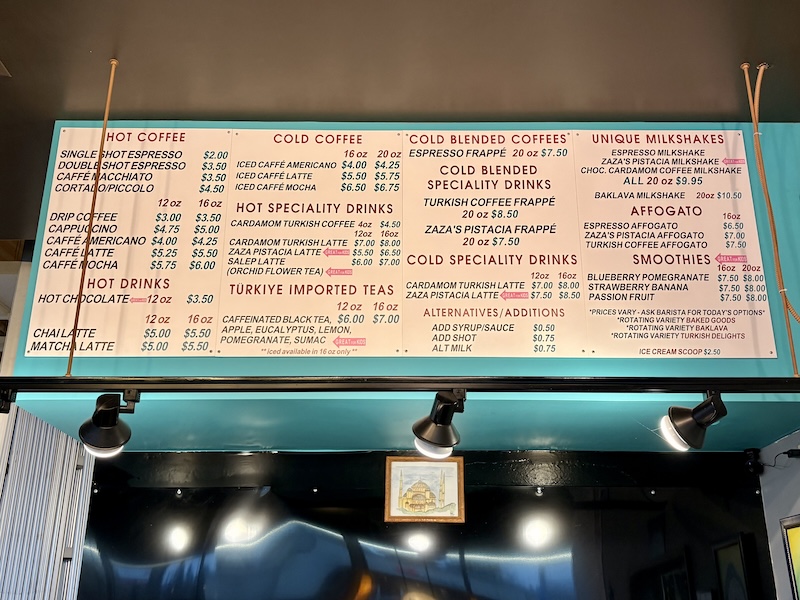 HOT COFFEE
SINGLE SHOT ESPRESSO $2.00
DOUBLE SHOT ESPRESSO $3.50
CAFFÉ MACCHIATO $3.50
CORTADO/PICCOLO $4.50
12 oz 16 oz
DRIP COFFEE $3.00 $3.50
CAPPUCCINO $4.75 $5.00
CAFFÉ AMERICANO $4.00 $4.25
CAFFÉ LATTE $5.25 $5.50
CAFFÉ MOCHA $5.75 $6.00
HOT DRINKS
HOT CHOCOLATE 12 oz $3.50
12 oz 16 oz
CHAI LATTE $5.00 $5.50
MATCHA LATTE $5.00 $5.50
COLD COFFEE
16 oz 20 oz
ICED CAFFÉ AMERICANO $4.00 $4.25
ICED CAFFÉ LATTE $5.50 $5.75
ICED CAFFÉ MOCHA $6.50 $6.75
HOT SPECIALITY DRINKS
CARDAMOM TURKISH COFFEE 4oz $4.50
12oz 16oz
CARDAMOM TURKISH LATTE $7.00 $8.00
ZAZA PISTACIA LATTE GREAT FOR KIDS $6.50 $8.00
SALEP LATTE $6.00 $7.00
(ORCHID FLOWER TEA) GREAT FOR KIDS
TÜRKIYE IMPORTED TEAS
12 oz 16 oz
CAFFEINATED BLACK TEA, $6.00 $7.00
APPLE, EUCALYPTUS, LEMON,
POMEGRANATE, SUMAC GREAT FOR KIDS
**iced available in 16 oz only**
COLD BLENDED COFFEES
ESPRESSO FRAPPÉ 20 oz $7.50
COLD BLENDED
SPECIALITY DRINKS
TURKISH COFFEE FRAPPÉ
20 oz $8.50
ZAZA'S PISTACIA FRAPPÉ
20 oz $7.50
COLD SPECIALITY DRINKS
12oz 16oz
CARDAMOM TURKISH LATTE $7.00 $8.00
ZAZA PISTACIA LATTE GREAT FOR KIDS $7.50 $8.50
ALTERNATIVES/ADDITIONS
ADD SYRUP/SAUCE $0.50
ADD SHOT $0.75
ALT MILK $0.75
UNIQUE MILKSHAKES
ESPRESSO MILKSHAKE
ZAZA'S PISTACIA MILKSHAKE GREAT FOR KIDS
CHOC. CARDAMOM COFFEE MILKSHAKE
ALL 20 oz $9.95
BAKLAVA MILKSHAKE 20oz $10.50
AFFOGATO
16oz
ESPRESSO AFFOGATO $6.50
ZAZA'S PISTACIA AFFOGATO $7.00
TURKISH COFFEE AFFOGATO $7.50
SMOOTHIES GREAT FOR KIDS
16oz 20oz
BLUEBERRY POMEGRANATE $7.50 $8.00
STRAWBERRY BANANA $7.50 $8.00
PASSION FRUIT $7.50 $8.00
*PRICES VARY - ASK BARISTA FOR TODAY'S OPTIONS*
*ROTATING VARIETY BAKED GOODS
*ROTATING VARIETY BAKLAVA
*ROTATING VARIETY TURKISH DELIGHTS
ICE CREAM SCOOP $2.50